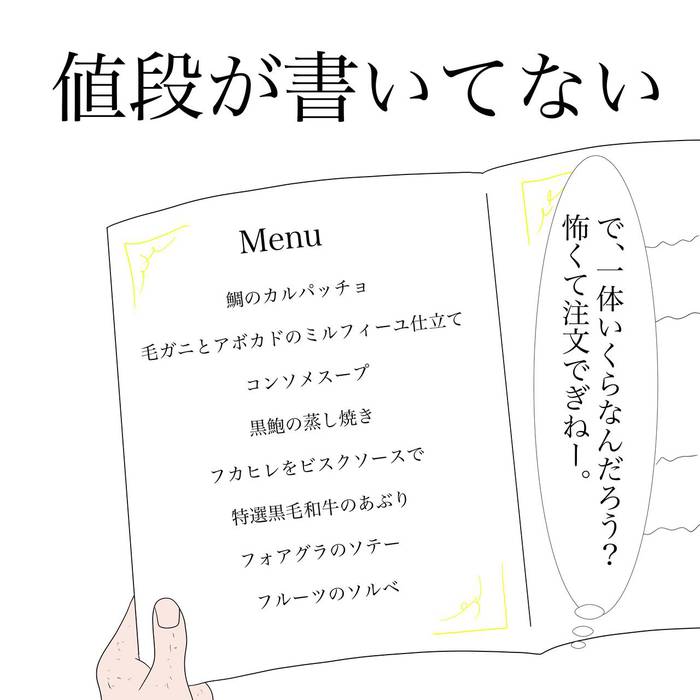 値段が書いてない
Menu
鯛のカルパッチョ
毛ガニとアボカドのミルフィーユ仕立て
コンソメスープ
黒鮑の蒸し焼き
フカヒレをビスクソースで
特選黒毛和牛のあぶり
フォアグラのソテー
フルーツのソルベ
で、一体いくらなんだろう？
怖くて注文でぎねー。